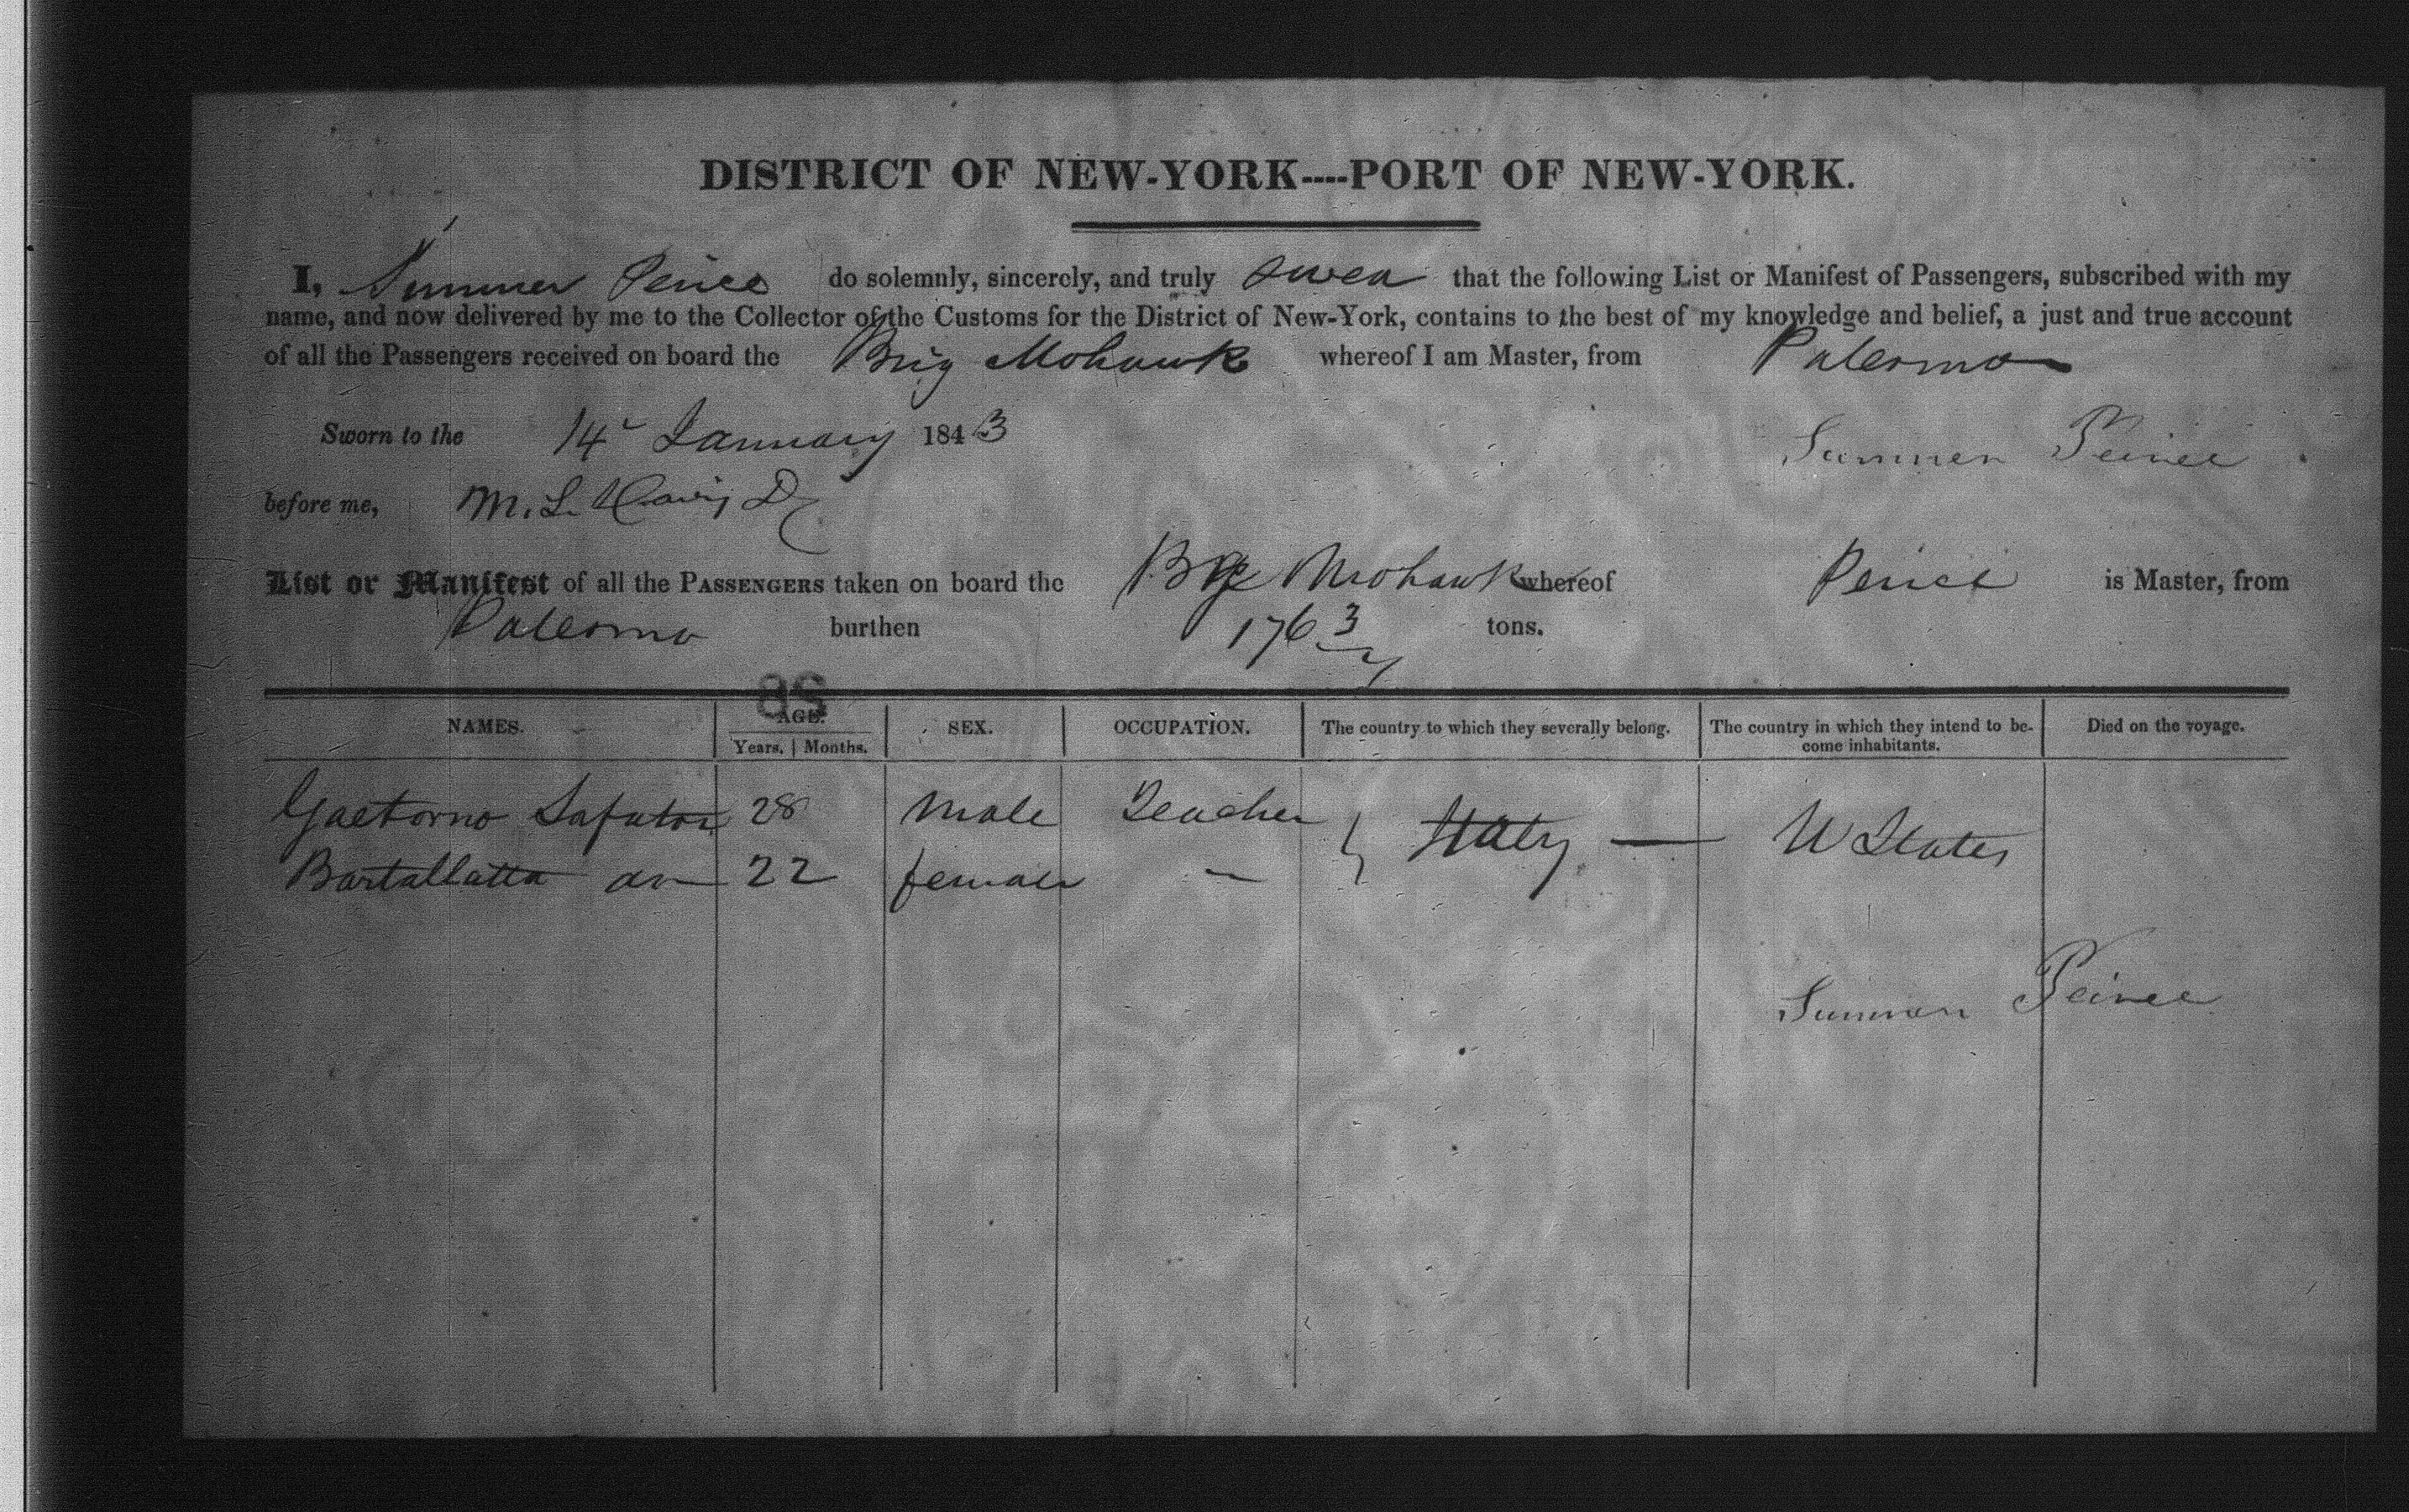 DISTRICT OF NEW-YORK----PORT OF NEW-YORK.
I, Sumner Peirce do solemnly, sincerely, and truly swear that the following List or Manifest of Passengers, subscribed with my
name, and now delivered by me to the Collector of the Customs for the District of New-York, contains to the best of my knowledge and belief, a just and true account
of all the Passengers received on board the Brig Mohawk whereof I am Master, from Palermo
Sworn to the 14 January 1843 Sumner Peirce
before me, M. L. Davis
List or Manifest of all the PASSENGERS taken on board the Mohawk whereof Peirce is Master, from
Palermo burthen 176 tons.
NAMES. AGE. SEX. OCCUPATION. The country to which they severally belong. The country in which they intend to be-
Years. Months. come inhabitants. Died on the voyage.
Gaetorno 28 Male Teacher Italy — U States
Bartallatta 22 female
Sumner Peirce